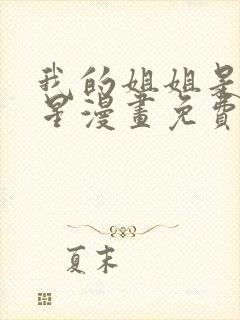 我的姐姐是
星漫畫免費
夏末